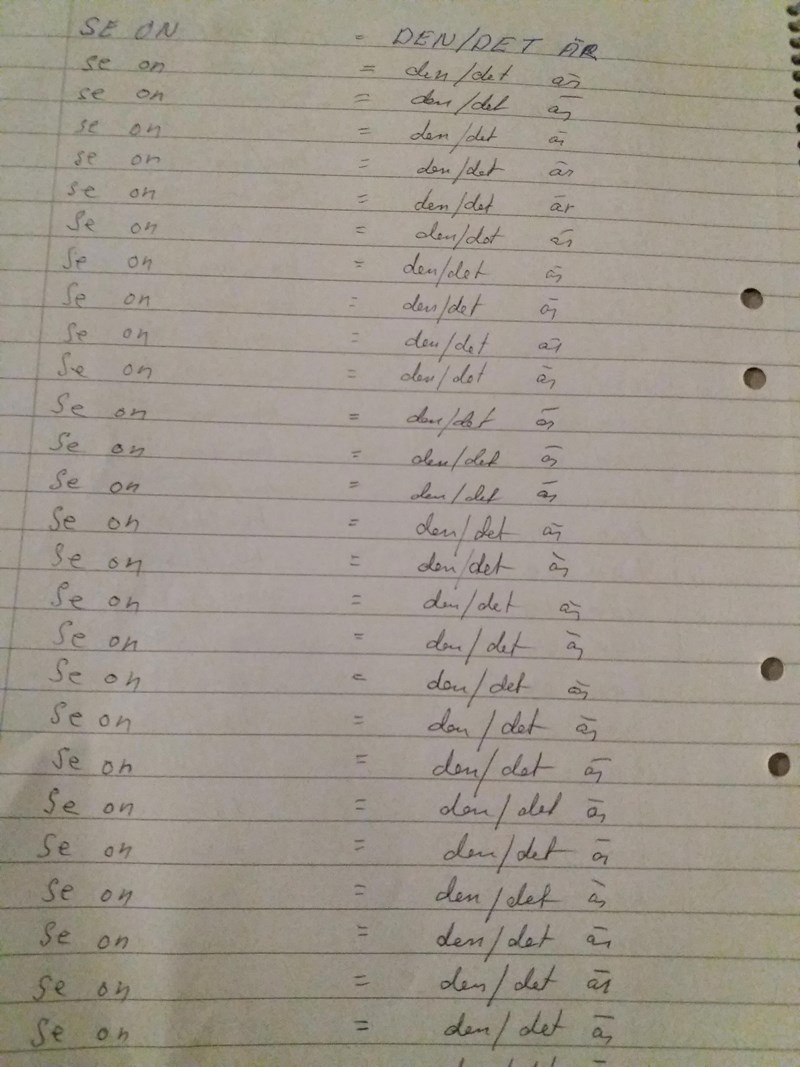 SE ON = DEN/DET ÄR
se on = den/det är
se on = den/det är
se on = den/det är
se on = den/det är
se on = den/det är
Se on = den/det är
Se on = den/det är
Se on = den/det är
Se on = den/det är
Se on = den/det är
Se on = den/det är
Se on = den/det är
Se on = den/det är
Se on = den/det är
Se on = den/det är
Se on = den/det är
Se on = den/det är
Se on = den/det är
Se on = den/det är
Se on = den/det är
Se on = den/det är
Se on = den/det är
Se on = den/det är
Se on = den/det är
Se on = den/det är
Se on = den/det är